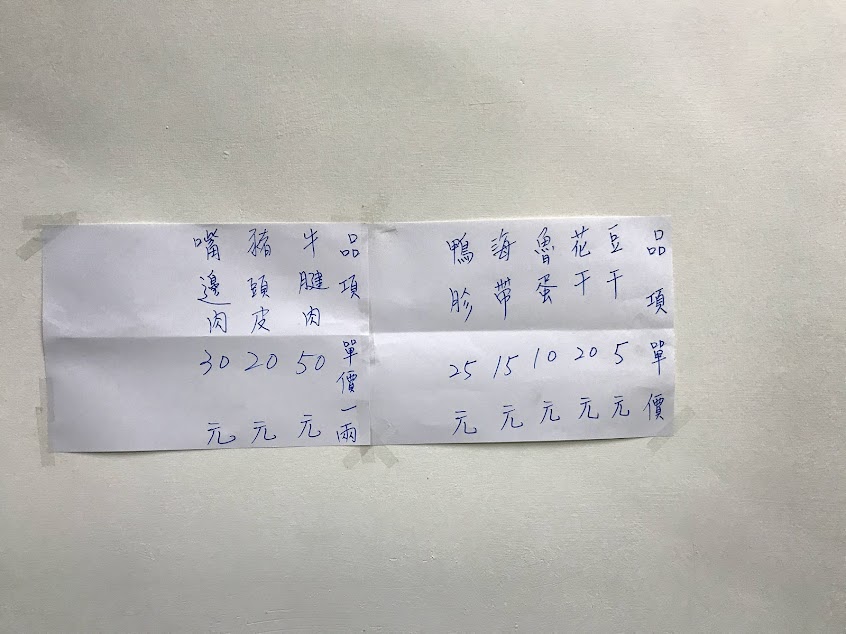 品項 單價
豆干 5元
花干 20元
魯蛋 10元
海帶 15元
鴨胗 25元
品項 單價一兩
牛腱肉 50元
豬頭皮 20元
嘴邊肉 30元